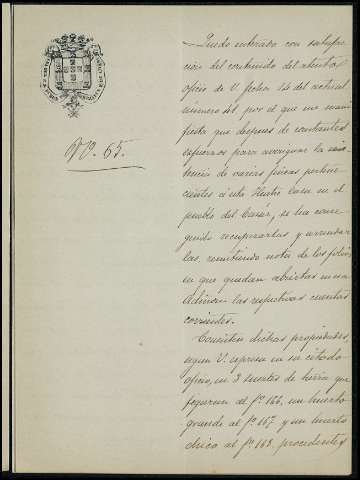 Nº. 65.
Quedo enterado con satisfac-
ción del contenido del atento
oficio de V. fecha 14 del actual
número 41, por el que me mani-
fiesta que despues de constantes
esfuerzos para averiguar la
de varias fincas pertene-
cientes á esta Ilustre Casa en el
pueblo del Casár, se ha conse-
guido recuperarlas y arrendar-
las, remitiendo nota de los folios
en que quedan abiertas en esa
Admon las respectivas cuentas
corrientes.
Consisten dichas propiedades,
segun V. expresa en su citado
oficio, en 3 suertes de tierra que
figuran al fº 166, un huerto
grande al fº 167 y un huerto
chico al fº 168, procedentes